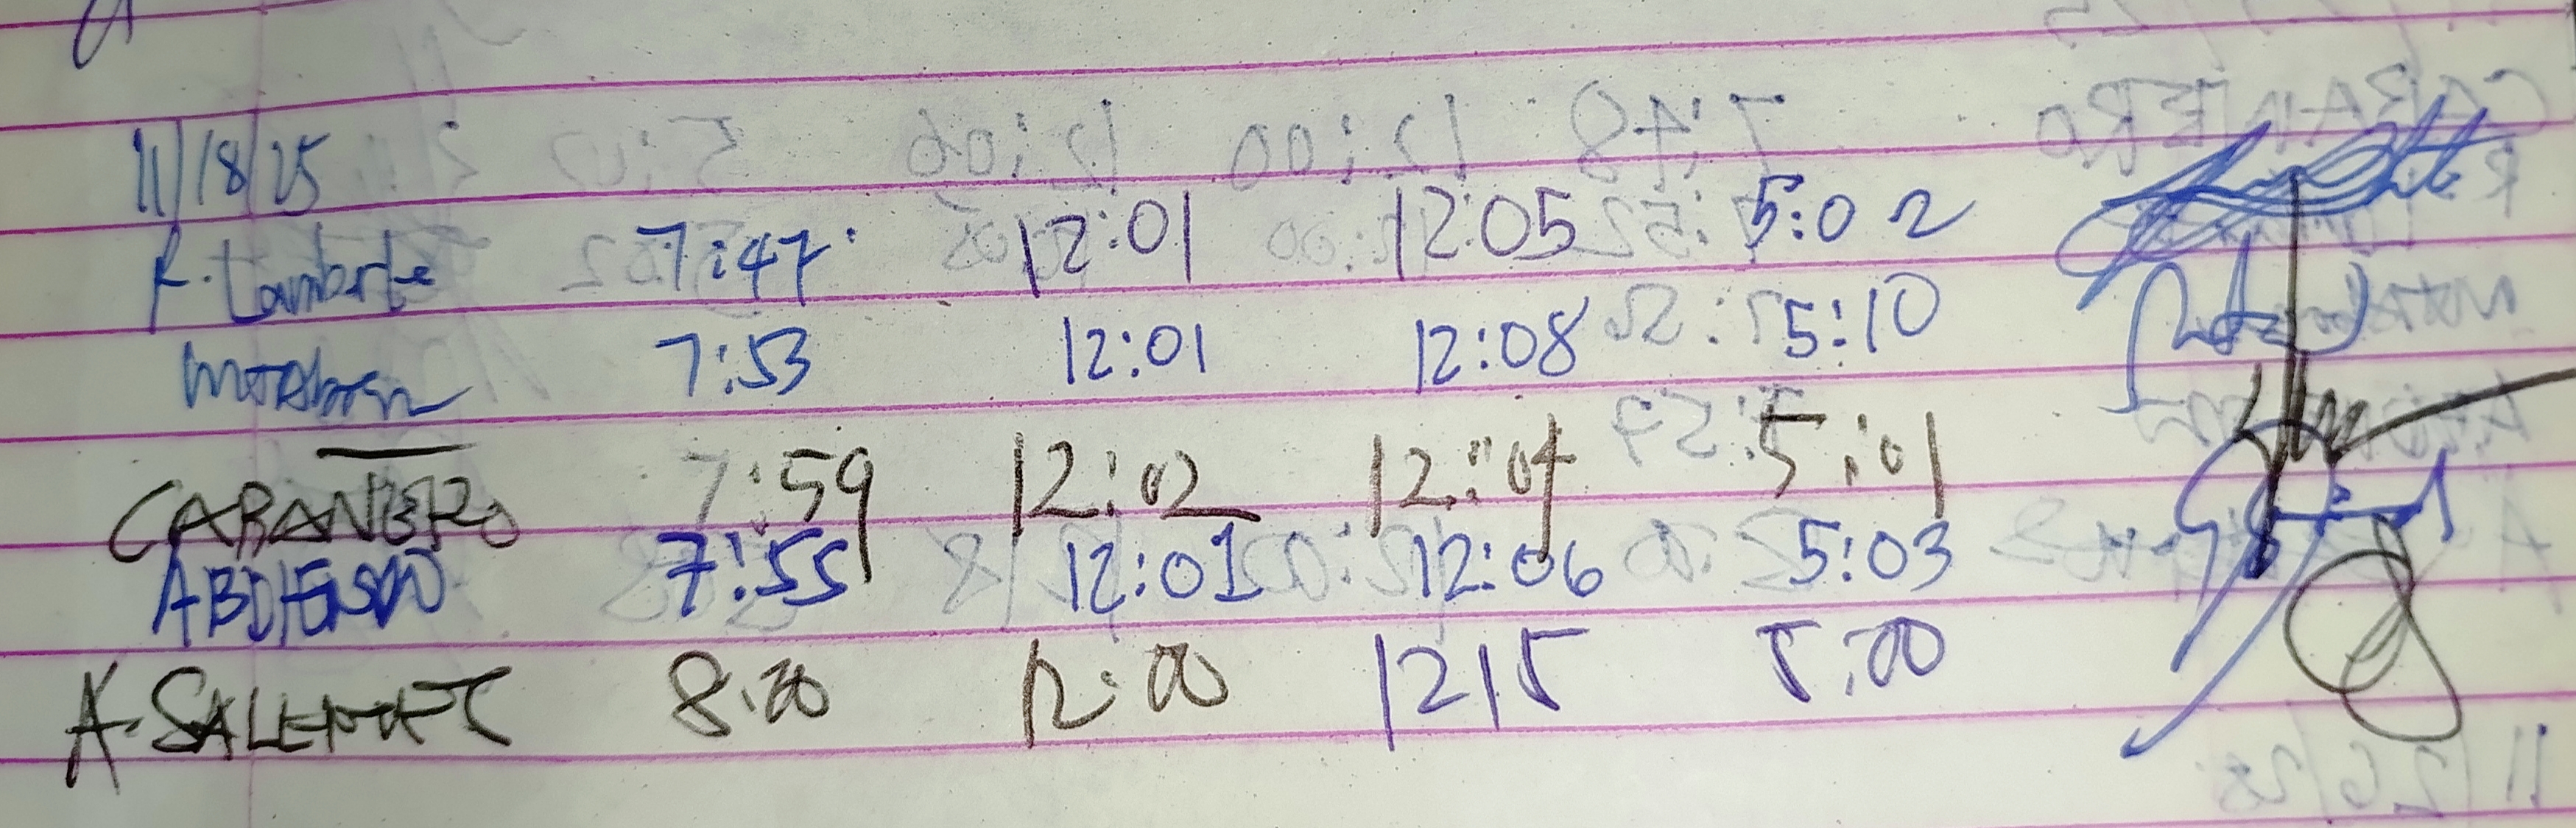 11/18/25
R. Lamberte 7:47 12:01 12:05 5:02
7:53 12:01 12:08 5:10
CABANERO 7:59 12:02 12:04 5:01
7:55 12:01 12:06 5:03
A. 8:00 12:00 1215 5:00